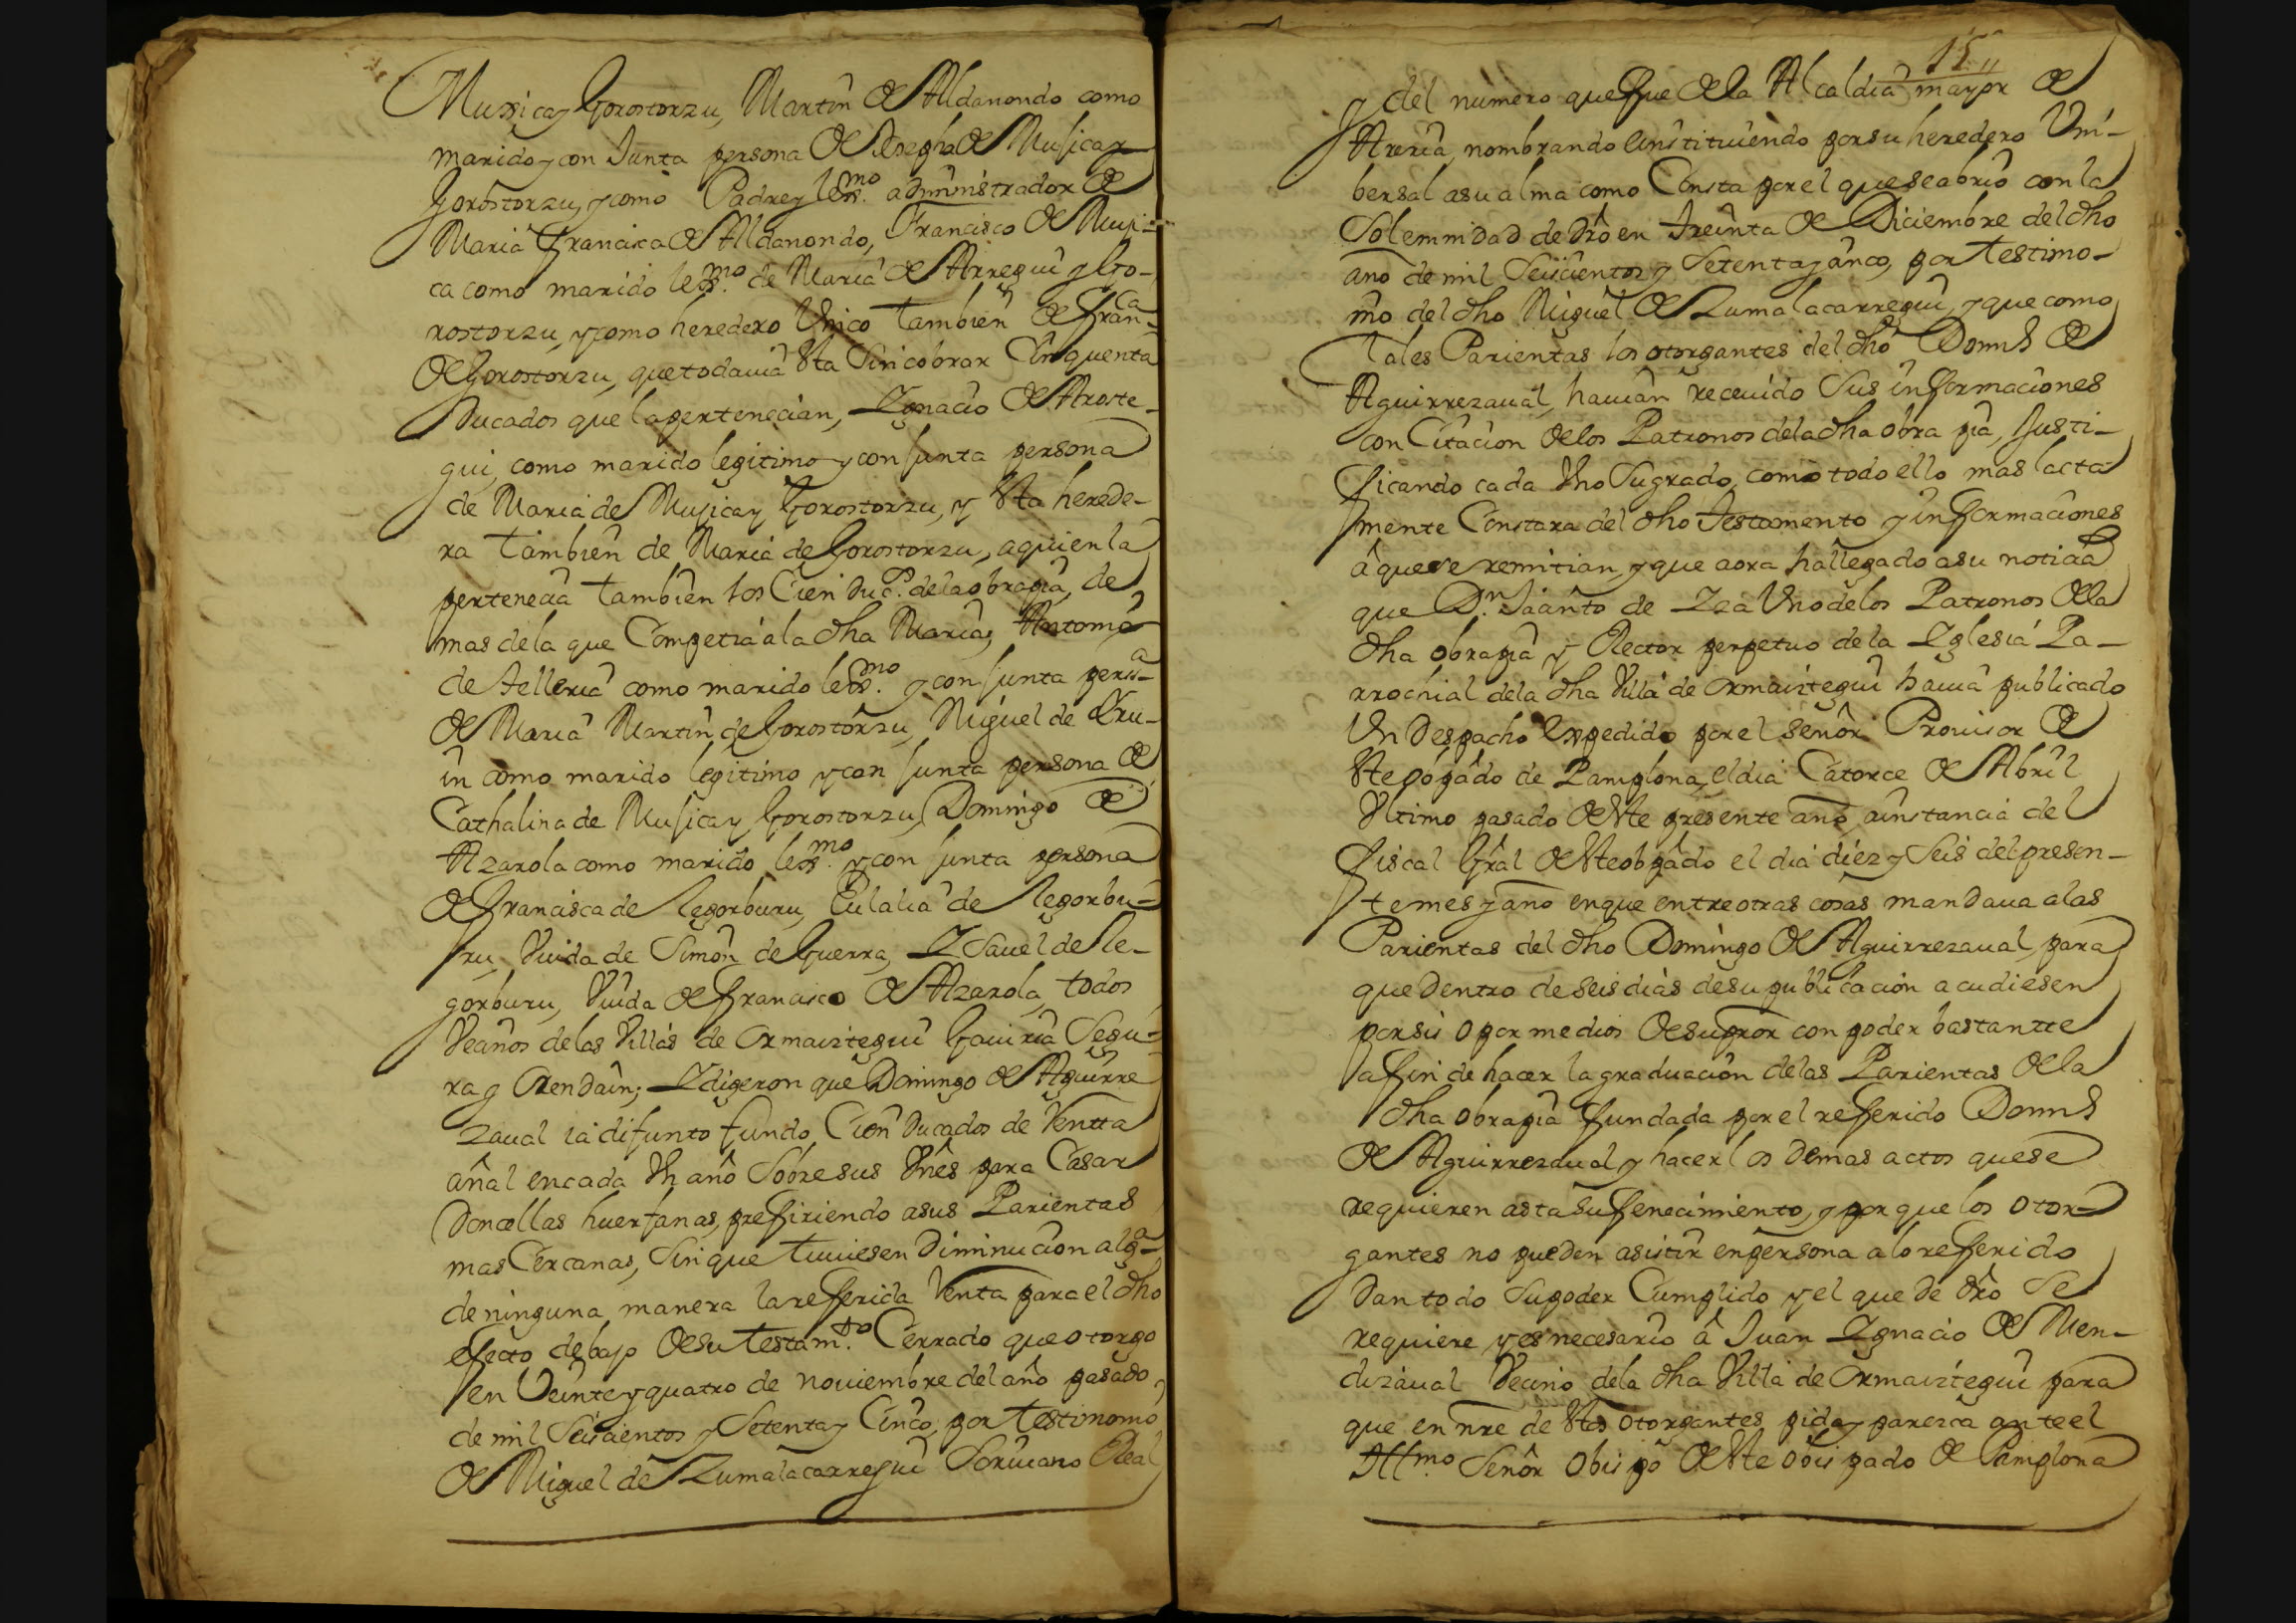 Musica y Gorostorzu, Martin de Aldanondo como
marido y conjunta persona de Josepha de Musica y
Gorostorzu, y como Padre y legmo. administrador de
Maria Francisca de Aldanondo, Francisco de Musi-
ca como marido legmo. de Maria de Arregui y Go-
rostorzu, y como heredero Vnico tambien de Franca.
de Gorostorzu, que todauia Esta sin cobrar Cinquenta
Ducados que la pertenecian, Ignacio de Aroste-
gui, como marido legitimo y conjunta persona
de Maria de Musica y Gorostorzu, y Esta herede-
ra tambien de Maria de Gorostorzu, a quien la
pertenecia tambien los Cien Ducs. de la obra pia, de
mas de la que Competia a la dha Maria, Antonio
de Telleria como marido legmo. y conjunta persa.
de Maria Martin de Gorostorzu, Miguel de Oru-
in como marido legitimo y con junta persona de
Cathalina de Musica y Gorostorzu, Domingo de
Azarola como marido legmo. y con junta persona
de Francisca de Legorburu, Eulalia de Legorbu-
ru, Viuda de Simon de Guerra, Isauel de Le-
gorburu, Viuda de Francisco de Azarola, todos
Vecinos de las Villas de Ormaiztegui Gauiria Segu-
ra y Orendain; I digeron que Domingo de Aguirre
zaual ia difunto fundo Cien Ducados de Rentta
añal en cada Vn año sobre sus Vnes para Casar
Doncellas huerfanas, prefiriendo a sus Parientas
mas Cercanas, sin que tuuiesen Diminucion alga.
de ninguna manera la referida Renta para el dho
efecto debajo de su testamto. Cerrado que otorgo
en Veinte y quatro de nouiembre del año pasado,
de mil Seiscientos y Setenta y Cinco, por testimonio
de Miguel de Zumalacarregui Scriuano Real
15
y del numero que fue de la Alcaldia mayor de
Areria, nombrando e instituiendo por su heredero Vni-
bersal a su alma como Consta por el que se abrio con la
Solemnidad de dro en treinta de Diciembre del dho
año de mil Seiscientos y Setenta y cinco, por testimo-
nio del dho Miguel de Zumalacarregui, y que como
tales Parientas los otorgantes del dho Domo de
Aguirrezaual, hauian receuido Sus informaciones
con Citacion de los Patronos de la dha obra pia, Justi-
ficando cada Vno Su grado, como todo ello mas lacta
mente Constara del dho Testamento y informaciones
â que se remitian, y que aora ha llegado a su noticia
que Dn. Jacinto de Zea Vno de los Patronos de la
dha obra pia y Rector perpetuo de la Iglesia Pa-
rrochial de la dha Villa de Ormaiztegui hauia publicado
Vn Despacho Expedido por el señor Prouisor de
Este obpado de Pamplona, el dia Catorce de Abril
Vltimo pasado de Este presente año, a instancia del
fiscal Gral de Este obpado el dia diez y Seis del presen-
te mes y año en que entre otras cosas mandaua a las
Parientas del dho Domingo de Aguirrezaual, para
que dentro de seis dias de su publicacion acudiesen
por si o por medios de su pror con poder bastantte
a fin de hacer la graduacion de las Parientas de la
dha obra pia fundada por el referido Domo
de Aguirrezaual y hacer los demas actos que se
requieren asta su fenecimiento, y por que los otor-
gantes no pueden asistir en persona a lo referido
Dan todo Su poder Cumplido y el que de dro Se
requiere y es necesario â Juan Ignacio de Men-
dizaual Vecino de la dha Villa de Ormaiztegui para
que en nre de Estos otorgantes pida y parezca ante el
Illmo. Señor Obispo de Este obispado de Pamplona